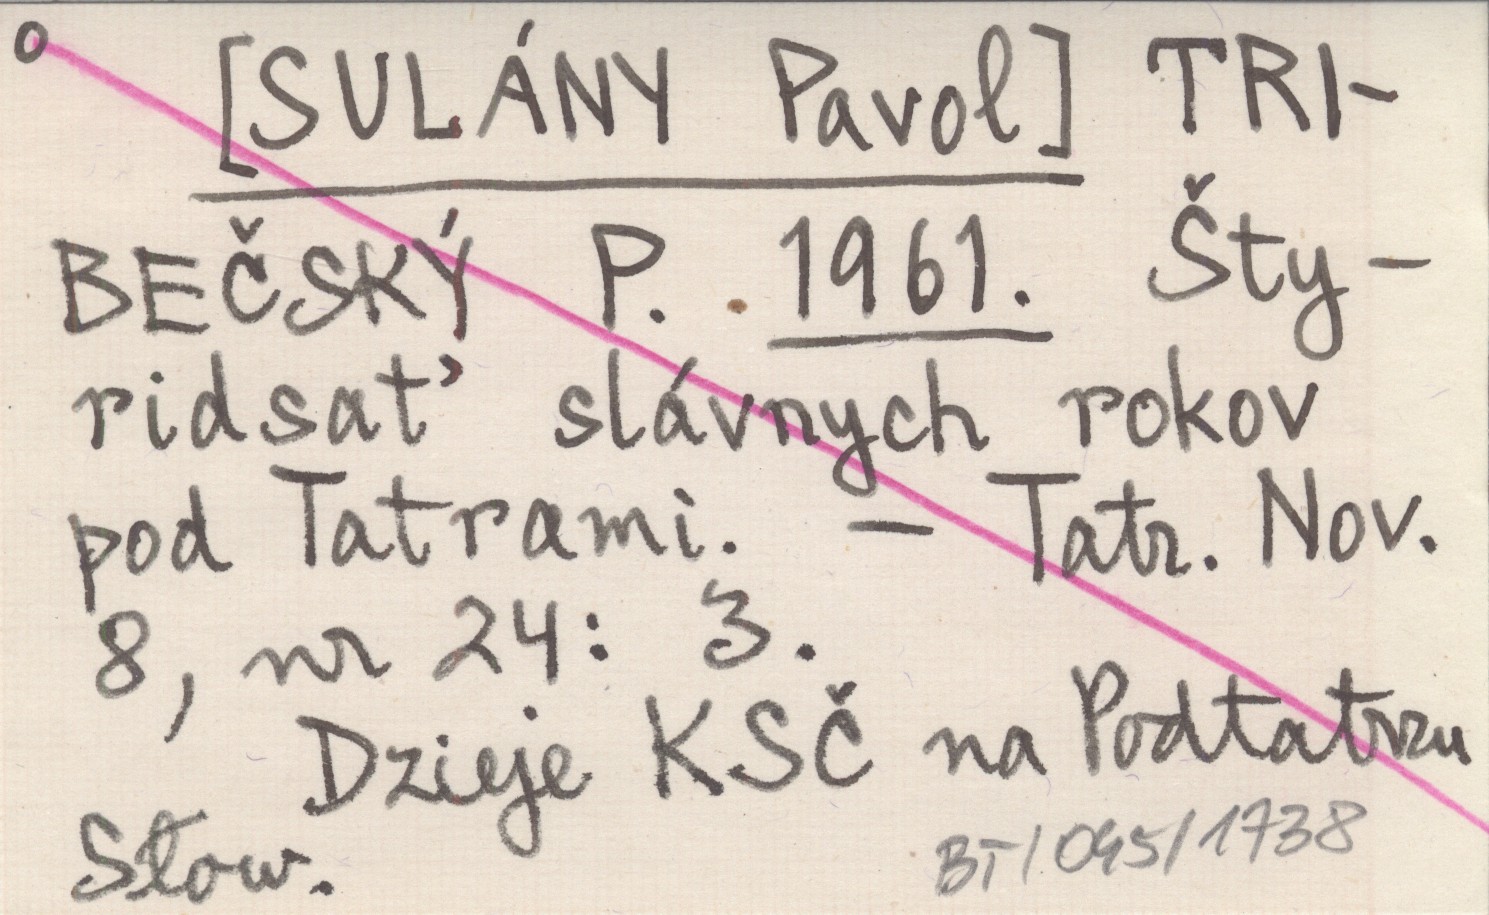 [SULÁNY Pavol] TRI-
BEČSKÝ P. 1961. Šty-
ridsať slávnych rokov
pod Tatrami. — Tatr. Nov.
8, nr 24: 3.
Dzieje KSČ na Podtatrzu
Słow.
BT/095/1738